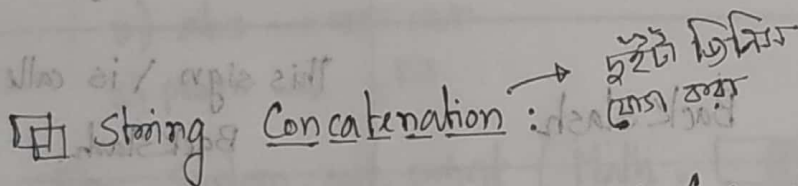 String Concatenation : → দুইটা জিনিস
যোগ করা